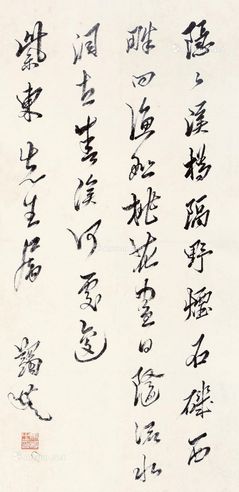 隱々溪橋隔野煙石磯西
畔問漁船桃花盡日隨流水
洞在青溪何處邊
紫東先生屬